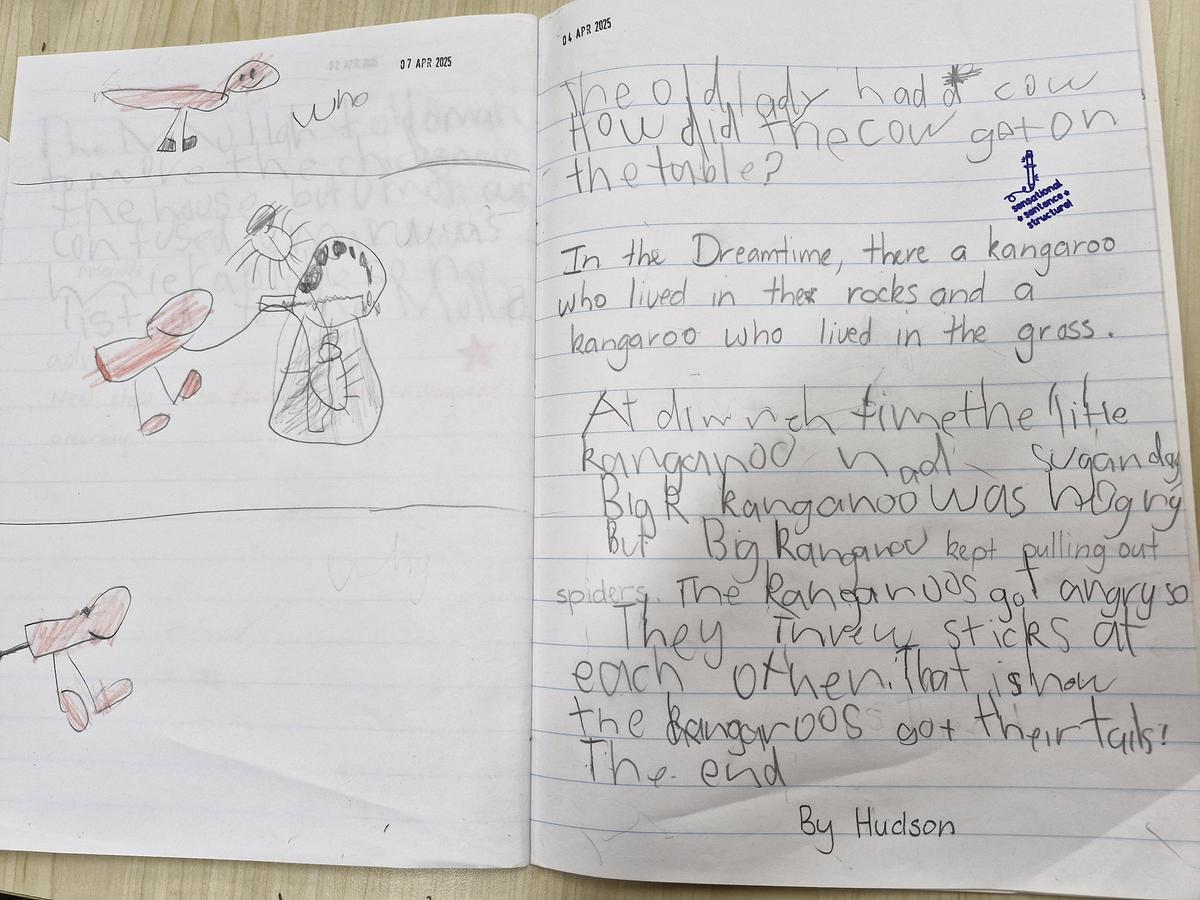 07 APR 2025
who
why
04 APR 2025
The old lady had a cow
How did the cow get on
the table?
sensational
sentence
structure!
In the Dreamtime, there a kangaroo
who lived in the rocks and a
kangaroo who lived in the grass.
At time the litle
kangaroo had
Big kangaroo was
But Big kangaroo kept pulling out
spiders. The kangaroos got angry so
They Threw sticks at
each other. That is how
the kangaroos got their tails!
The end
By Hudson